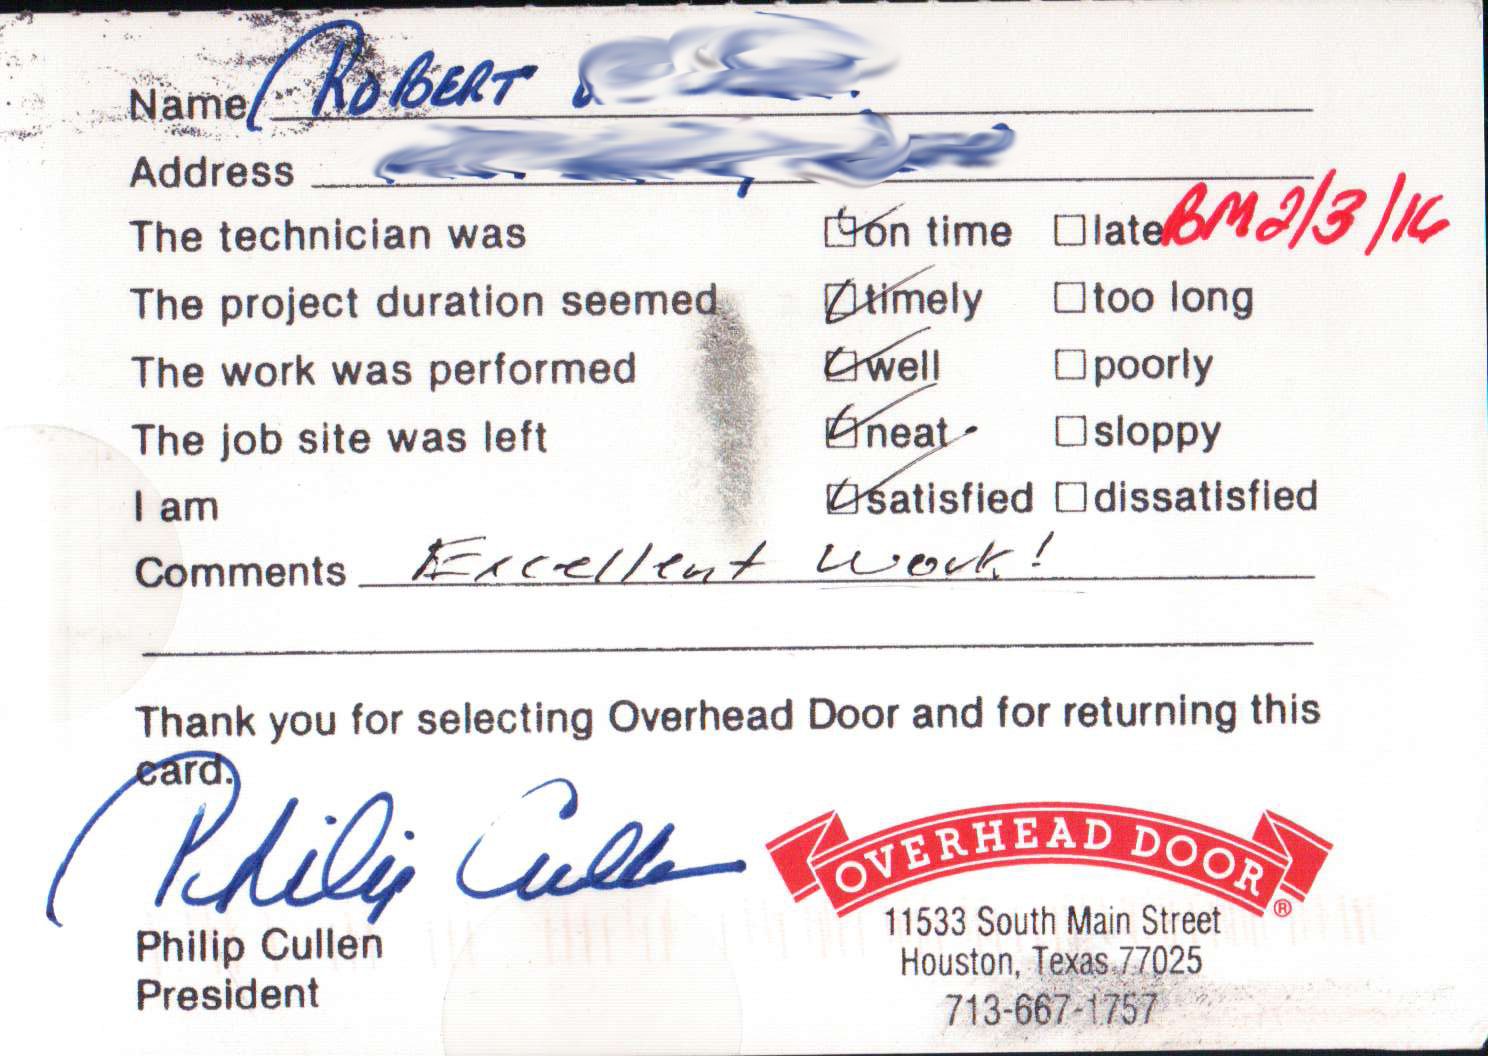 Name ROBERT
Address
The technician was on time late BM 2/3/16
The project duration seemed timely too long
The work was performed well poorly
The job site was left neat sloppy
I am satisfied dissatisfied
Comments Excellent work!
Thank you for selecting Overhead Door and for returning this
card.
Philip Cullen
Philip Cullen
President
OVERHEAD DOOR®
11533 South Main Street
Houston, Texas 77025
713-667-1757